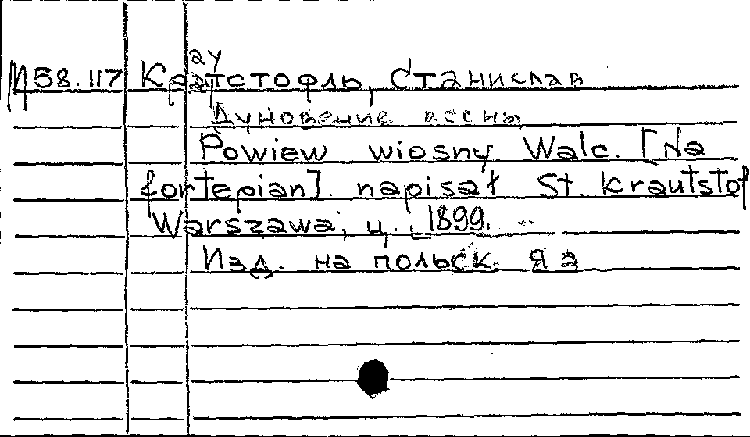 М58.117 Краутстофль, Станислав
Дуновение весны
Powiew wiosny. Walc. [Na
fortepian]. napisał St. Krautstof
Warszawa, ц. 1899.
Изд. на польск. яз